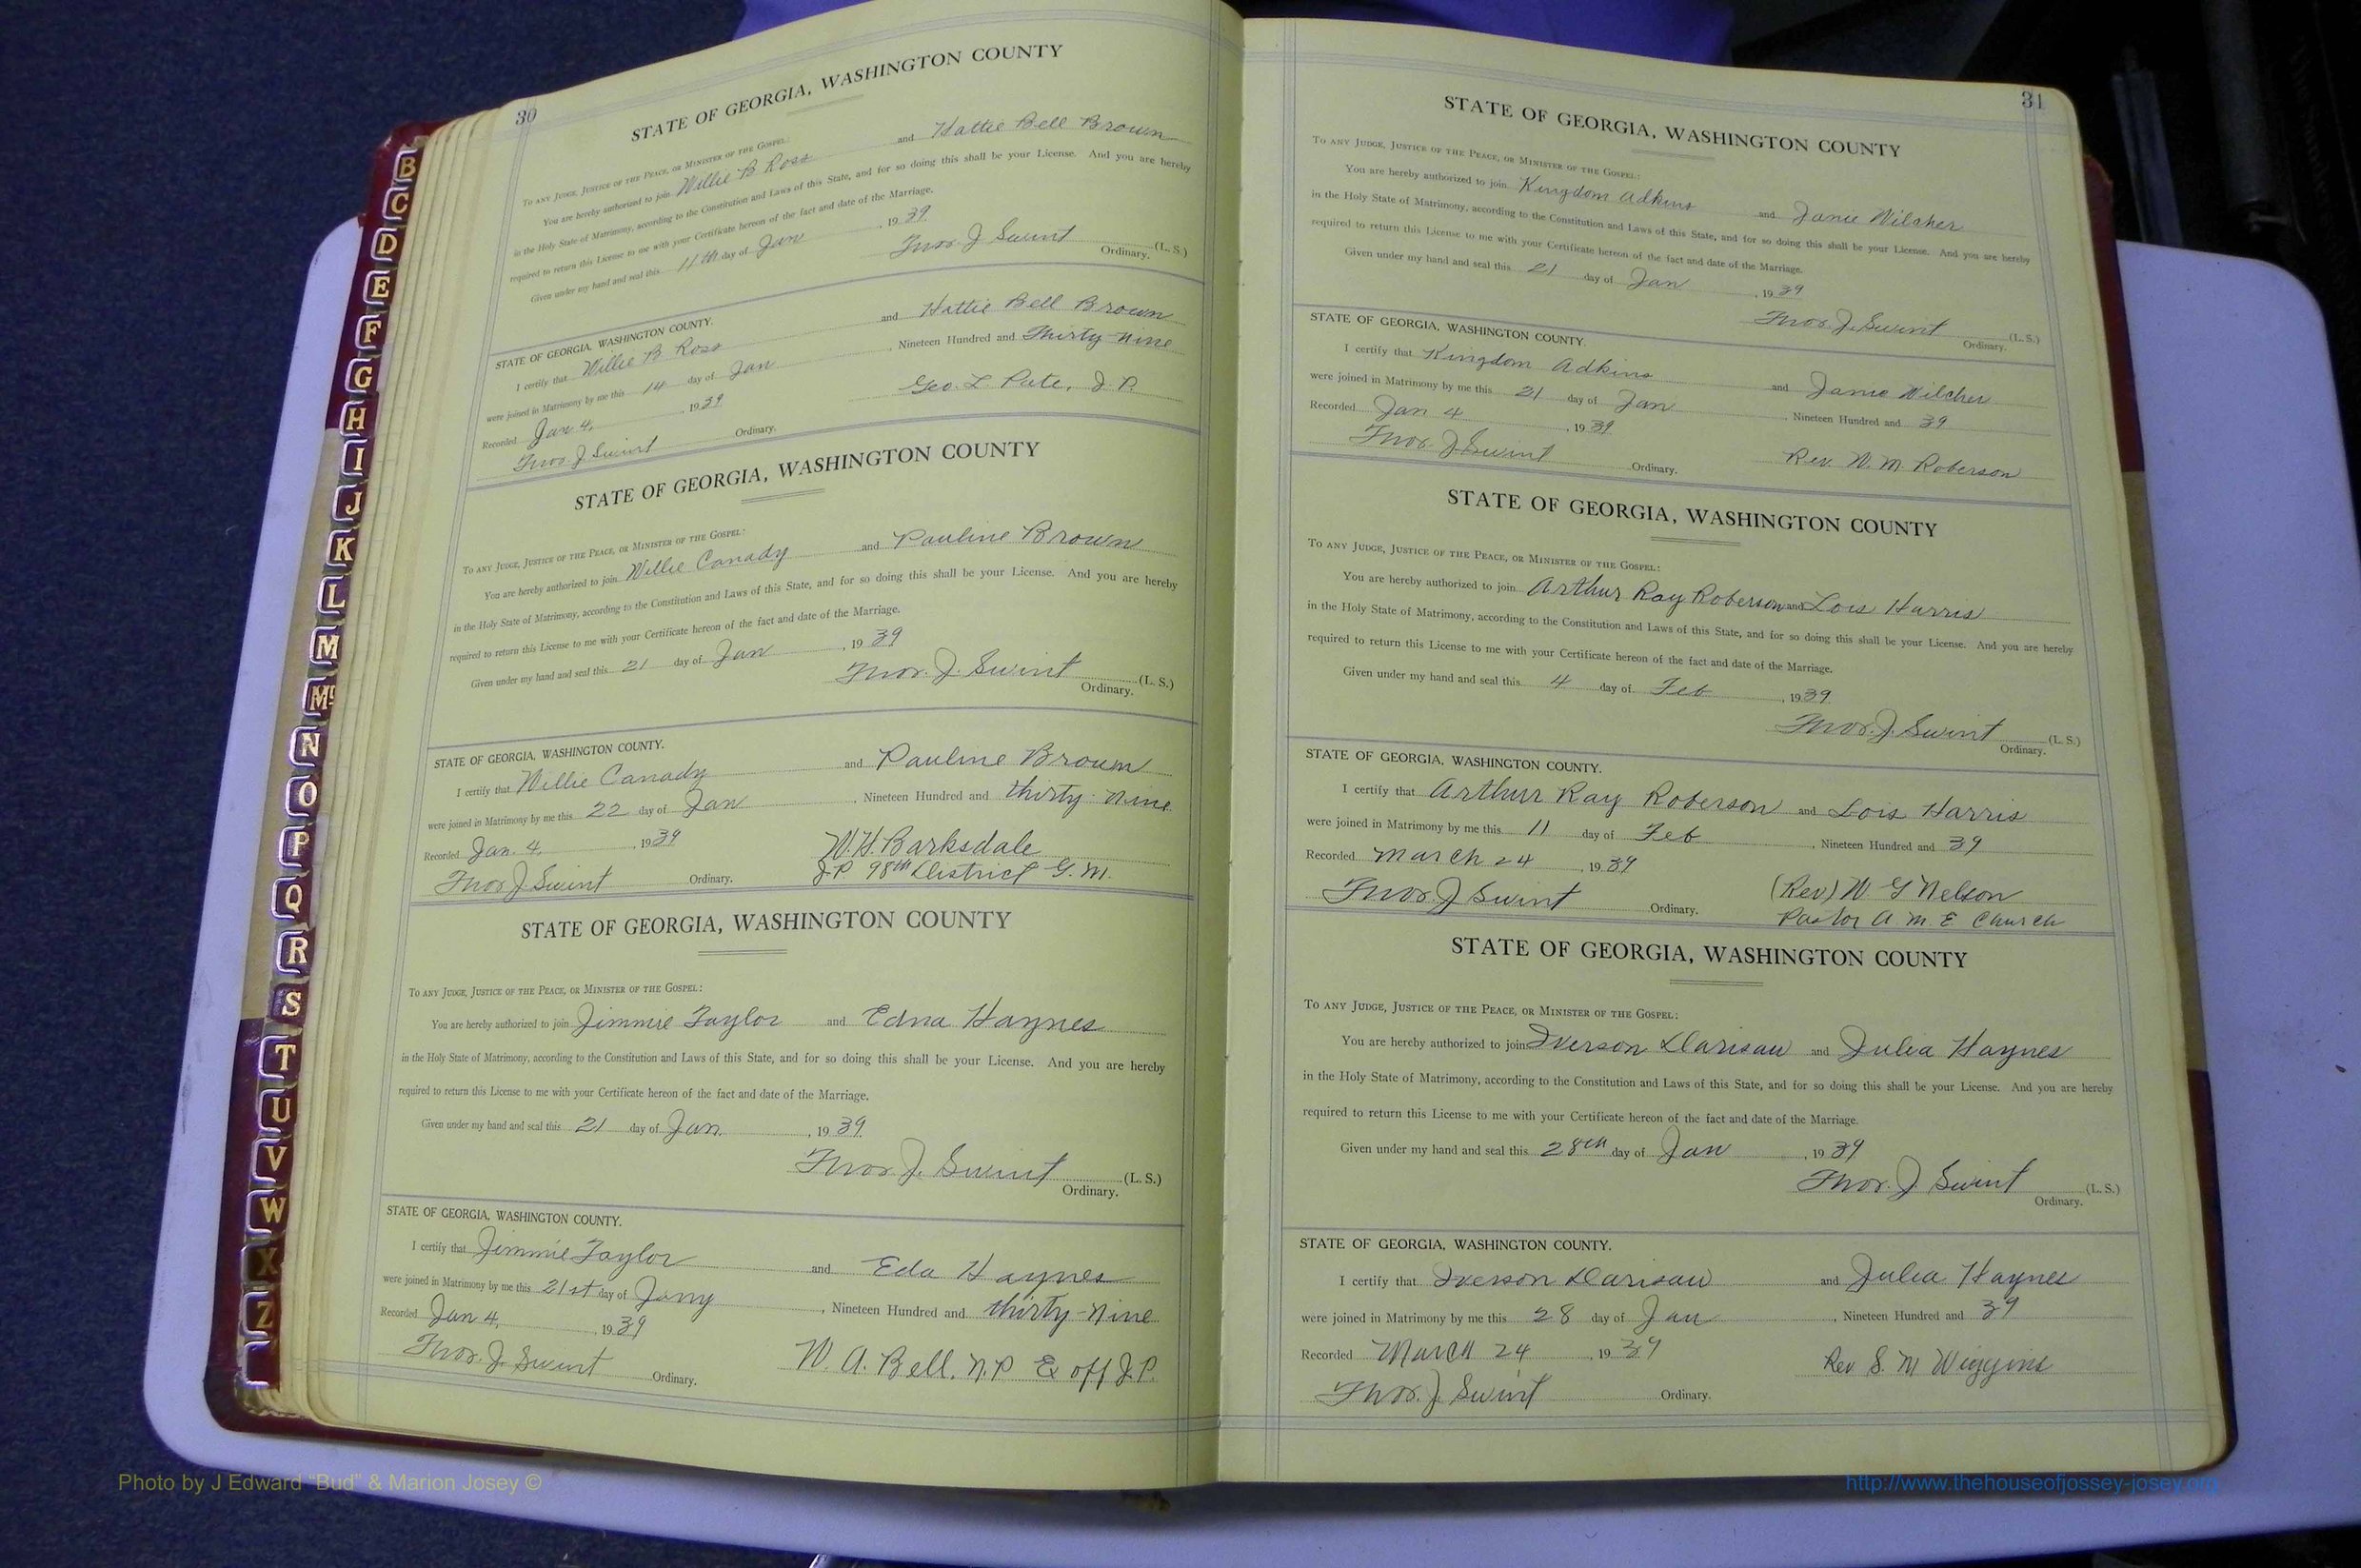 B
C
D
E
F
G
H
I
J
K
L
M
Mc
N
O
P
Q
R
S
T
U
V
W
X
Z
30
STATE OF GEORGIA, WASHINGTON COUNTY
To any Judge, Justice of the Peace, or Minister of the Gospel:
You are hereby authorized to join Willie B Ross and Hattie Bell Brown
in the Holy State of Matrimony, according to the Constitution and Laws of this State, and for so doing this shall be your License. And you are hereby
required to return this License to me with your Certificate hereon of the fact and date of the Marriage.
Given under my hand and seal this 11th day of Jan, 1939
Thos J Swint (L. S.)
Ordinary.
STATE OF GEORGIA, WASHINGTON COUNTY.
I certify that Willie B Ross and Hattie Bell Brown
were joined in Matrimony by me this 14 day of Jan, Nineteen Hundred and Thirty-nine
Recorded Jan 4, 1939
Geo. L Pate, J. P.
Thos J Swint Ordinary.
STATE OF GEORGIA, WASHINGTON COUNTY
To any Judge, Justice of the Peace, or Minister of the Gospel:
You are hereby authorized to join Willie Canady and Pauline Brown
in the Holy State of Matrimony, according to the Constitution and Laws of this State, and for so doing this shall be your License. And you are hereby
required to return this License to me with your Certificate hereon of the fact and date of the Marriage.
Given under my hand and seal this 21 day of Jan, 1939
Thos. J. Swint (L. S.)
Ordinary.
STATE OF GEORGIA, WASHINGTON COUNTY.
I certify that Willie Canady and Pauline Brown
were joined in Matrimony by me this 22 day of Jan, Nineteen Hundred and thirty-nine
Recorded Jan. 4, 1939 W. H. Barksdale
Thos J Swint Ordinary. J.P. 98th District G. M.
STATE OF GEORGIA, WASHINGTON COUNTY
To any Judge, Justice of the Peace, or Minister of the Gospel:
You are hereby authorized to join Jimmie Taylor and Edna Haynes
in the Holy State of Matrimony, according to the Constitution and Laws of this State, and for so doing this shall be your License. And you are hereby
required to return this License to me with your Certificate hereon of the fact and date of the Marriage.
Given under my hand and seal this 21 day of Jan., 1939
Thos. J. Swint (L. S.)
Ordinary.
STATE OF GEORGIA, WASHINGTON COUNTY.
I certify that Jimmie Taylor and Eda Haynes
were joined in Matrimony by me this 21st day of Jany, Nineteen Hundred and thirty-nine
Recorded Jan 4, 1939
Thos. J. Swint Ordinary. W. A. Bell, N.P Ex off J.P.
31
STATE OF GEORGIA, WASHINGTON COUNTY
To any Judge, Justice of the Peace, or Minister of the Gospel:
You are hereby authorized to join Kingdom Adkins and Janie Wilcher
in the Holy State of Matrimony, according to the Constitution and Laws of this State, and for so doing this shall be your License. And you are hereby
required to return this License to me with your Certificate hereon of the fact and date of the Marriage.
Given under my hand and seal this 21 day of Jan, 1939
Thos. J. Swint (L. S.)
Ordinary.
STATE OF GEORGIA, WASHINGTON COUNTY.
I certify that Kingdom Adkins and Janie Wilcher
were joined in Matrimony by me this 21 day of Jan, Nineteen Hundred and 39
Recorded Jan 4, 1939
Thos. J Swint Ordinary. Rev. W. M. Roberson
STATE OF GEORGIA, WASHINGTON COUNTY
To any Judge, Justice of the Peace, or Minister of the Gospel:
You are hereby authorized to join Arthur Ray Roberson and Lois Harris
in the Holy State of Matrimony, according to the Constitution and Laws of this State, and for so doing this shall be your License. And you are hereby
required to return this License to me with your Certificate hereon of the fact and date of the Marriage.
Given under my hand and seal this 4 day of Feb, 1939
Thos. J. Swint (L. S.)
Ordinary.
STATE OF GEORGIA, WASHINGTON COUNTY.
I certify that Arthur Ray Roberson and Lois Harris
were joined in Matrimony by me this 11 day of Feb, Nineteen Hundred and 39
Recorded March 24, 1939
Thos J Swint Ordinary. (Rev) W G Nelson
Pastor A. M. E Church
STATE OF GEORGIA, WASHINGTON COUNTY
To any Judge, Justice of the Peace, or Minister of the Gospel:
You are hereby authorized to join Iverson Darisaw and Julia Haynes
in the Holy State of Matrimony, according to the Constitution and Laws of this State, and for so doing this shall be your License. And you are hereby
required to return this License to me with your Certificate hereon of the fact and date of the Marriage.
Given under my hand and seal this 28th day of Jan, 1939
Thos. J. Swint (L. S.)
Ordinary.
STATE OF GEORGIA, WASHINGTON COUNTY.
I certify that Iverson Darisaw and Julia Haynes
were joined in Matrimony by me this 28 day of Jan, Nineteen Hundred and 39
Recorded March 24, 1939 Rev S. M Wiggins
Thos. J. Swint Ordinary.
Photo by J Edward “Bud” & Marion Josey ©
http://www.thehouseofjossey-josey.org